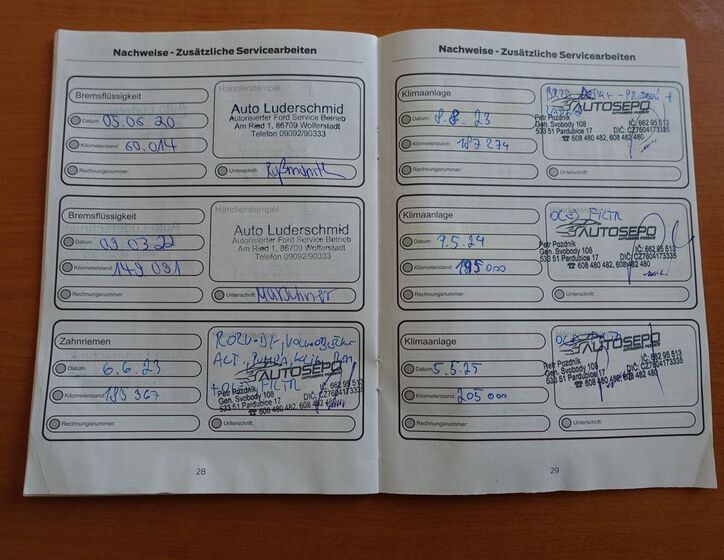 Nachweise - Zusätzliche Servicearbeiten
Bremsflüssigkeit
Händlerstempel
Datum: 05.06.20
Kilometerstand: 60.014
Rechnungsnummer:
Auto Luderschmid
Autorisierter Ford Service Betrieb
Am Ried 1, 86709 Wolferstadt
Telefon 09092/90333
Unterschrift:
Bremsflüssigkeit
Händlerstempel
Datum: 09 03 22
Kilometerstand: 149 091
Rechnungsnummer:
Auto Luderschmid
Autorisierter Ford Service Betrieb
Am Ried 1, 86709 Wolferstadt
Telefon 09092/90333
Unterschrift:
Zahnriemen
Datum: 6.6.23
Kilometerstand: 185 367
Rechnungsnummer:
+ OLEJ FILTR
AUTOSEPO
Petr Pozdník
Gen. Svobody 108
533 51 Pardubice 17
IČ: 662 95 513
☎ 608 480 482, 608 482 480
Unterschrift:
28
Nachweise - Zusätzliche Servicearbeiten
Klimaanlage
Datum: 8.8.23
Kilometerstand: 187 274
Rechnungsnummer:
AUTOSEPO
Petr Pozdník
Gen. Svobody 108
533 51 Pardubice 17
IČ: 662 95 513
DIČ: CZ7604173335
☎ 608 480 482, 608 482 480
Unterschrift:
Klimaanlage
Datum: 9.5.24
Kilometerstand: 195 000
Rechnungsnummer:
OLEJ FILTR
AUTOSEPO
Petr Pozdník
Gen. Svobody 108
533 51 Pardubice 17
IČ: 662 95 513
DIČ: CZ7604173335
☎ 608 480 482, 608 482 480
Unterschrift:
Klimaanlage
Datum: 5.5.25
Kilometerstand: 205 000
Rechnungsnummer:
AUTOSEPO
Petr Pozdník
Gen. Svobody 108
533 51 Pardubice 17
IČ: 662 95 513
☎ 608 480 482, 608 482 480
Unterschrift:
29